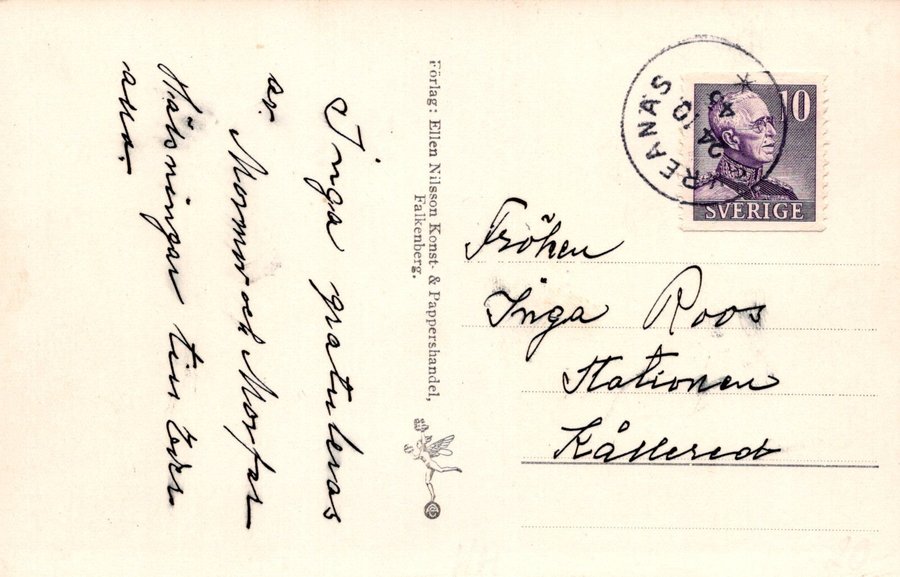 Inga gratuleras
av
Mormor och Morfar
Hälsningar till Eder
alla.
Förlag: Ellen Nilsson Konst- & Pappershandel,
Falkenberg.
SKREANÄS
24 10
43
10
SVERIGE
Fröken
Inga Roos
Stationen
Kållered